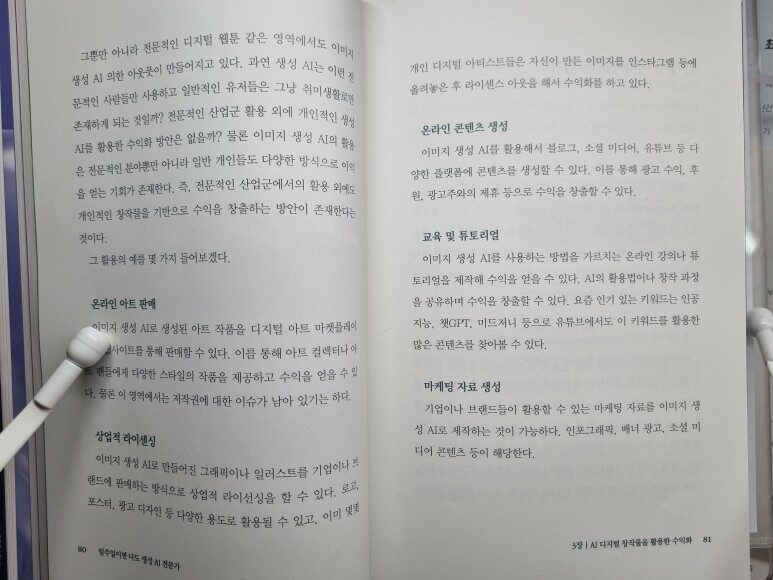 그뿐만 아니라 전문적인 디지털 웹툰 같은 영역에서도 이미지
생성 AI 의한 아웃풋이 만들어지고 있다. 과연 생성 AI는 이런 전
문적인 사람들만 사용하고 일반적인 유저들은 그냥 취미생활로만
존재하게 되는 것일까? 전문적인 산업군 활용 외에 개인적인 생성
AI를 활용한 수익화 방안은 없을까? 물론 이미지 생성 AI의 활용
은 전문적인 분야뿐만 아니라 일반 개인들도 다양한 방식으로 이익
을 얻는 기회가 존재한다. 즉, 전문적인 산업군에서의 활용 외에도
개인적인 창작물을 기반으로 수익을 창출하는 방안이 존재한다는
것이다.
그 활용의 예를 몇 가지 들어보겠다.
온라인 아트 판매
이미지 생성 AI로 생성된 아트 작품을 디지털 아트 마켓플레이
사이트를 통해 판매할 수 있다. 이를 통해 아트 컬렉터나 아
트 팬들에게 다양한 스타일의 작품을 제공하고 수익을 얻을 수 있
다. 물론 이 영역에서는 저작권에 대한 이슈가 남아 있기는 하다.
상업적 라이센싱
이미지 생성 AI로 만들어진 그래픽이나 일러스트를 기업이나 브
랜드에 판매하는 방식으로 상업적 라이선싱을 할 수 있다. 로고,
포스터, 광고 디자인 등 다양한 용도로 활용될 수 있고, 이미 몇몇
80 일주일이면 나도 생성 AI 전문가
개인 디지털 아티스트들은 자신이 만든 이미지를 인스타그램 등에
올려놓은 후 라이센스 아웃을 해서 수익화를 하고 있다.
온라인 콘텐츠 생성
이미지 생성 AI를 활용해서 블로그, 소셜 미디어, 유튜브 등 다
양한 플랫폼에 콘텐츠를 생성할 수 있다. 이를 통해 광고 수익, 후
원, 광고주와의 제휴 등으로 수익을 창출할 수 있다.
교육 및 튜토리얼
이미지 생성 AI를 사용하는 방법을 가르치는 온라인 강의나 튜
토리얼을 제작해 수익을 얻을 수 있다. AI의 활용법이나 창작 과정
을 공유하며 수익을 창출할 수 있다. 요즘 인기 있는 키워드는 인공
지능, 챗GPT, 미드저니 등으로 유튜브에서도 이 키워드를 활용한
많은 콘텐츠를 찾아볼 수 있다.
마케팅 자료 생성
기업이나 브랜드들이 활용할 수 있는 마케팅 자료를 이미지 생
성 AI로 제작하는 것이 가능하다. 인포그래픽, 배너 광고, 소셜 미
디어 콘텐츠 등이 해당한다.
3장 | AI 디지털 창작물을 활용한 수익화 81